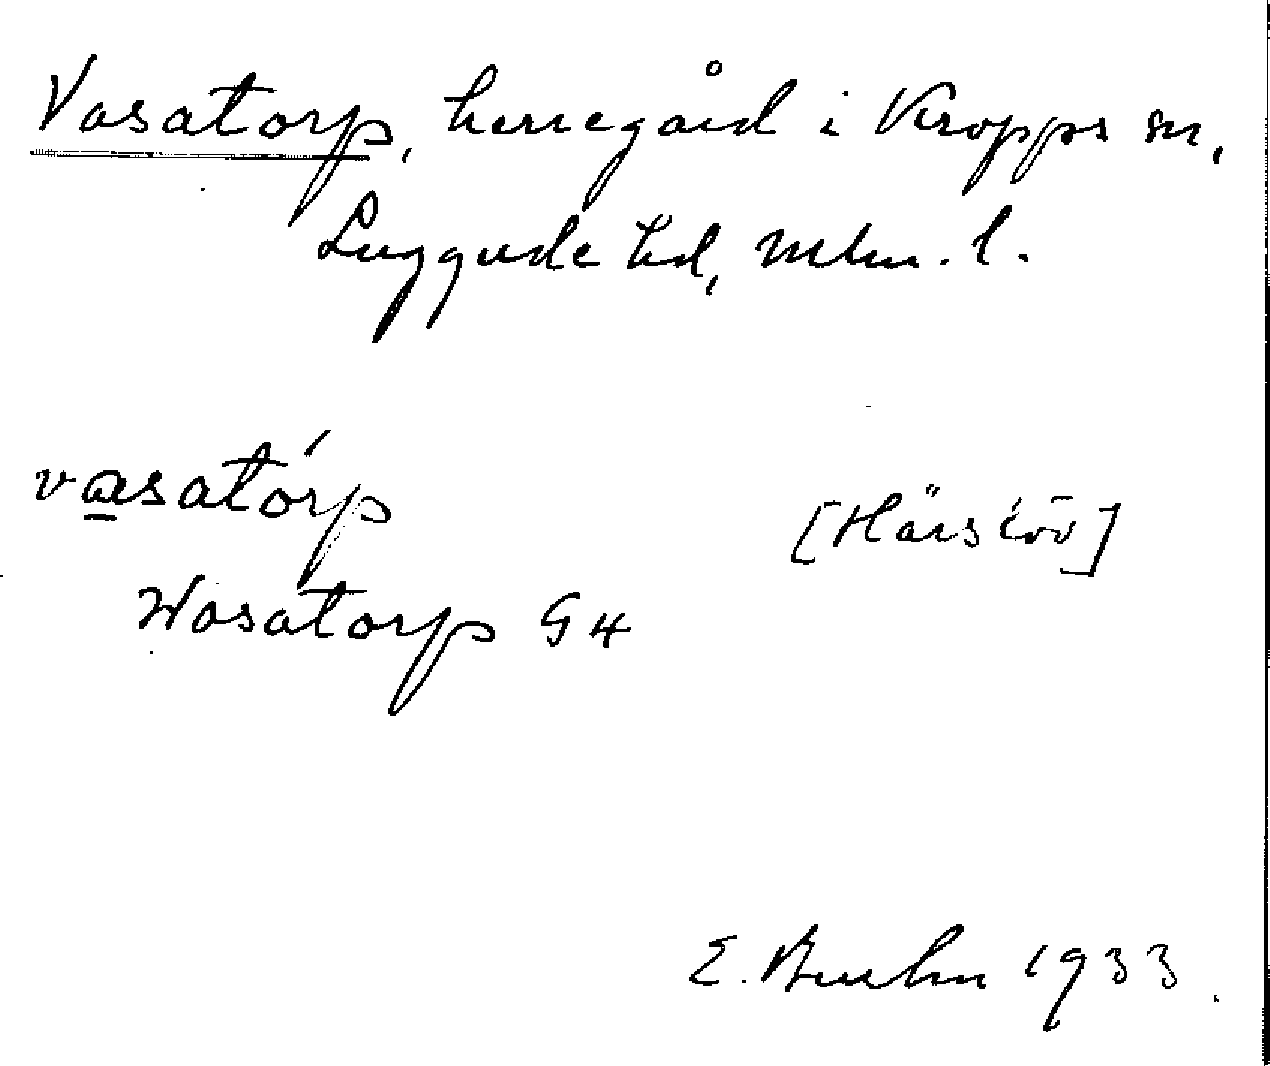 Vasatorp, herregård i Kropps sn,
Luggude hd, Mlm. l.
vasatórp
Wasatorp G4
E. Bruhn 1933